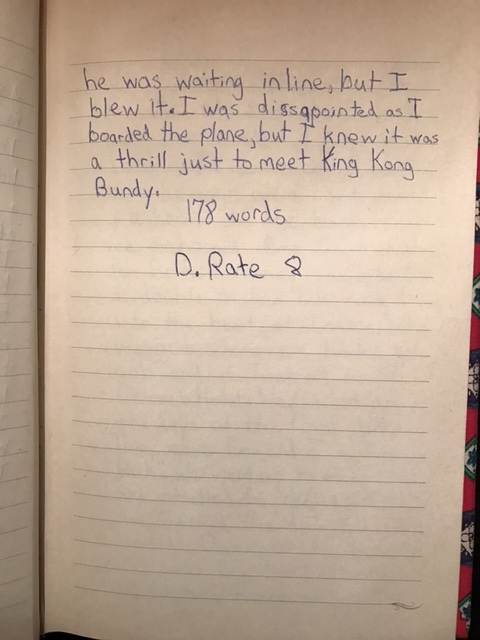 he was waiting in line, but I
blew it. I was dissapointed as I
boarded the plane, but I knew it was
a thrill just to meet King Kong
Bundy.
178 words
D. Rate 8